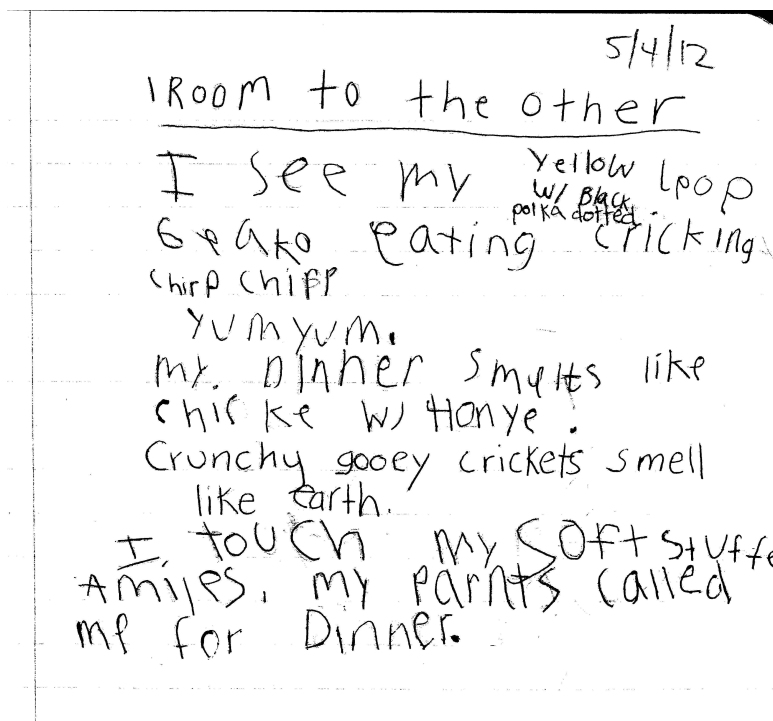 5/4/12
1 Room to the other
I see my yellow lpop
w/ Black
polka dotted
Geako eating cricking
chirp chirp
yum yum.
my. Dinner smylts like
chicke w/ Honye.
Crunchy gooey crickets smell
like earth.
I touch my soft stuffe
Amiles. my parnts called
me for Dinner.